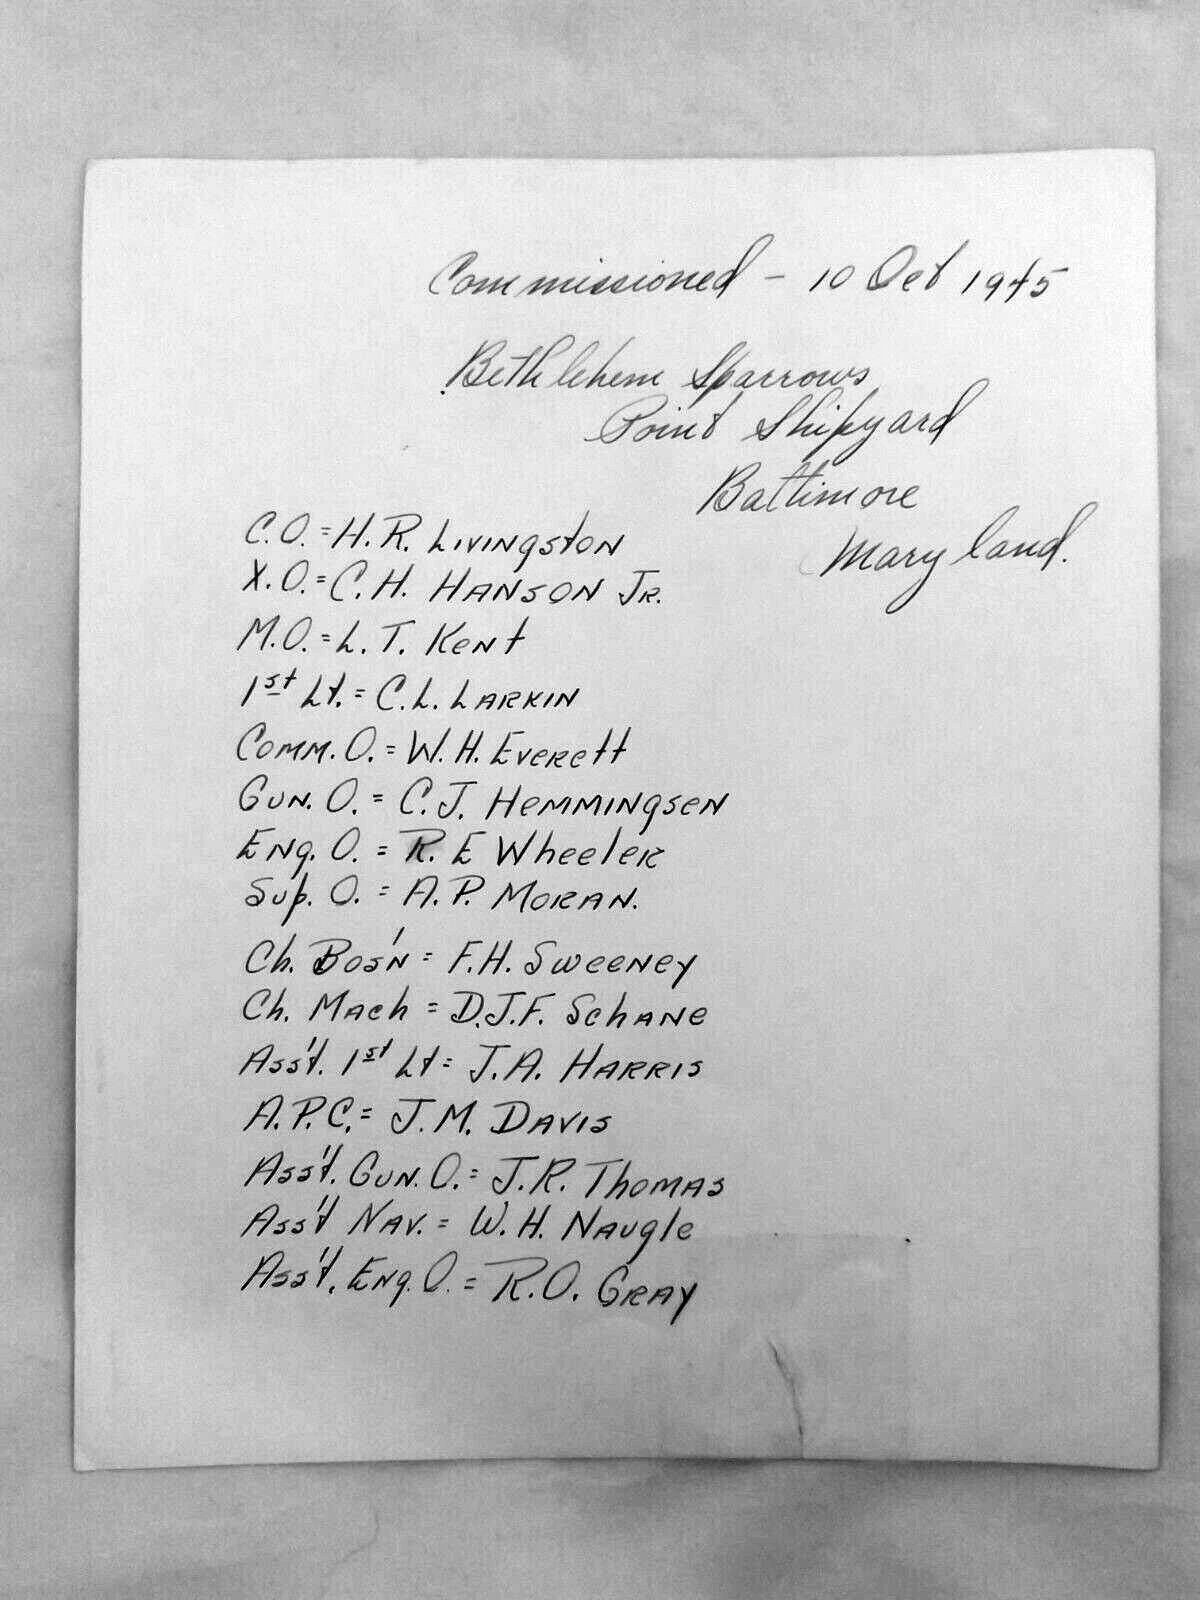 Commissioned - 10 Oct 1945
Bethlehem Sparrows
Point Shipyard
Baltimore
Maryland.
C.O. = H.R. Livingston
X.O. = C.H. Hanson Jr.
M.O. = L.T. Kent
1st Lt. = C.L. Larkin
Comm.O. = W.H. Everett
Gun. O. = C.J. Hemmingsen
Eng. O. = R.E Wheeler
Sup. O. = A.P. Moran.
Ch. Bos'n = F.H. Sweeney
Ch. Mach = D.J.F. Schane
Ass't. 1st Lt = J.A. Harris
A.P.C. = J.M. Davis
Ass't. Gun.O. = J.R. Thomas
Ass't Nav. = W.H. Naugle
Ass't. Eng.O. = R.O. Gray